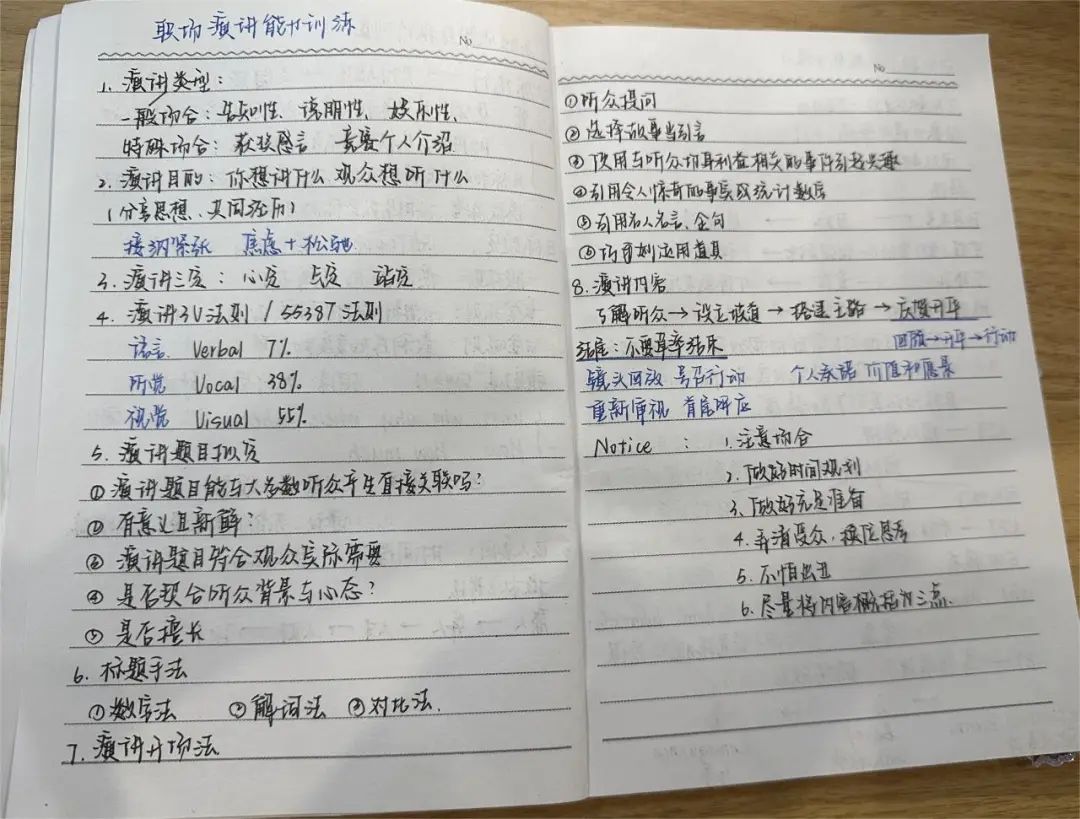 职场演讲能力训练
No
1. 演讲类型:
一般场合:告知性、说明性、娱乐性、
特殊场合:获奖感言 竞赛个人介绍
2. 演讲目的:你想讲什么 观众想听什么
(分享思想、共同经历)
接纳紧张 焦虑+松弛
3. 演讲三定: 心定 点定 站定
4. 演讲3V法则 / 55387法则
语言 Verbal 7%
听觉 Vocal 38%
视觉 Visual 55%
5. 演讲题目拟定
①演讲题目能与大多数听众产生直接关联吗?
②有意义且新解?
③演讲题目符合观众实际需要
④是否契合听众背景与心态?
⑤是否擅长
6. 标题手法
①数字法 ②解词法 ③对比法.
7. 演讲开场法
No
①听众提问
②选择故事当引言
③使用与听众切身利益相关的事件引起兴趣
④引用令人惊奇的事实或统计数字
⑤引用名人名言、金句
⑥巧妙运用道具
8. 演讲内容
了解听众→设立 →搭建主路→庆贺升华
结尾:不要草率结束 回顾→升华→行动
镜头回放 号召行动 个人承诺 价值和愿景
重新审视 首尾呼应
Notice : 1. 注意场合
2. 做好时间规划
3. 做好充足准备
4. 弄清受众,换位思考
5. 不怕出丑
6. 尽量将内容概括为三点.